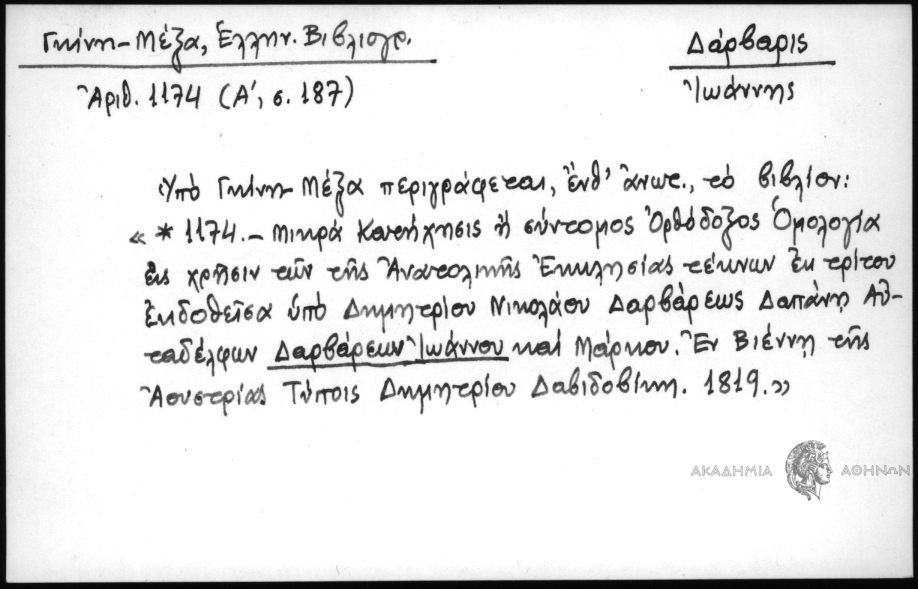 Γκίνη-Μέξα, Ἑλλην. Βιβλιογρ.
Ἀριθ. 1174 (Α', σ. 187)
Δάρβαρις
Ἰωάννης
Ὑπὸ Γκίνη-Μέξα περιγράφεται, ἔνθ' ἄνωτ., τὸ βιβλίον:
« * 1174. – Μικρὰ Κατήχησις ἢ σύντομος Ὀρθόδοξος Ὁμολογία
εἰς χρῆσιν τῶν τῆς Ἀνατολικῆς Ἐκκλησίας τέκνων ἐκ τρίτου
ἐκδοθεῖσα ὑπὸ Δημητρίου Νικολάου Δαρβάρεως Δαπάνῃ Αὐ-
ταδέλφων Δαρβάρεων Ἰωάννου καὶ Μάρκου. Ἐν Βιέννῃ τῆς
Ἀουστρίας Τύποις Δημητρίου Δαβιδοβίκη. 1819.»
ΑΚΑΔΗΜΙΑ ΑΘΗΝΩΝ